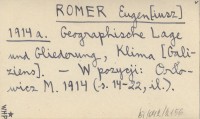 ROMER Eugen[iusz]
1914 a. Geographische Lage
und Gliederung, Klima [Gali-
ziens]. — W pozycji: Orło-
wicz M. 1914 (s. 14-22, il.).